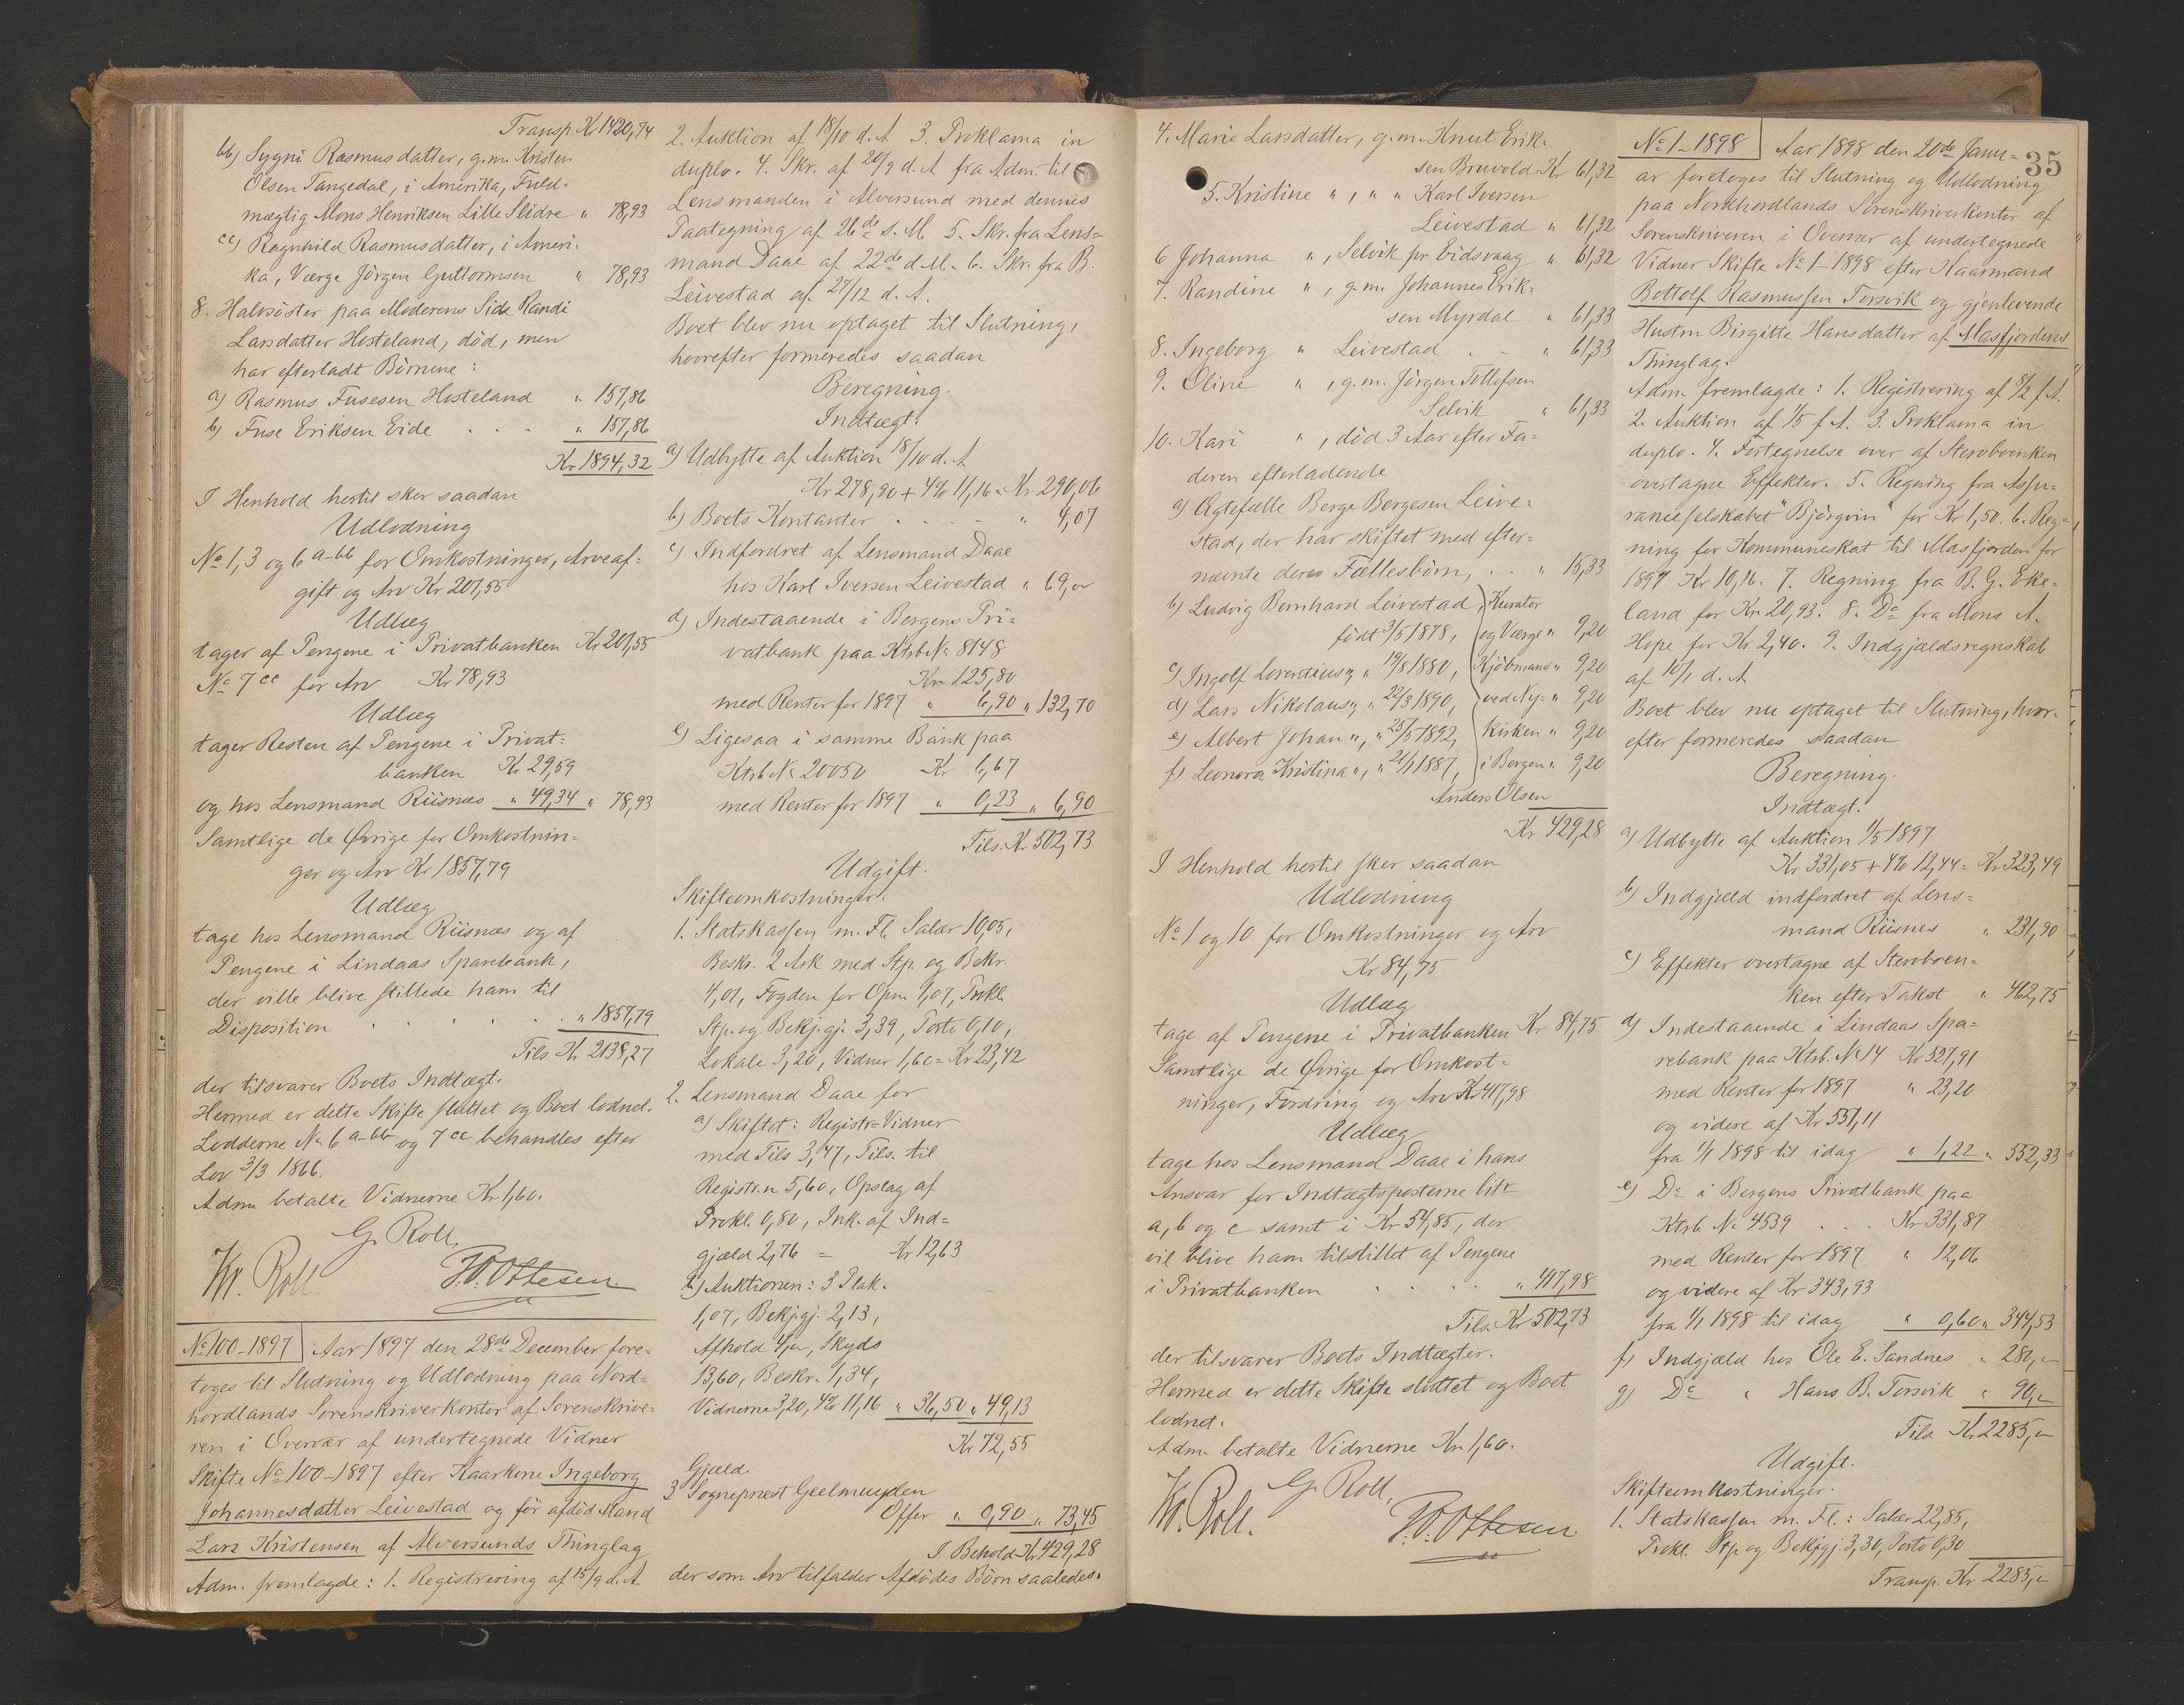 Transp. Kr 1420,74
bb) Sygni Rasmusdatter, g.m. Kristen
Olsen Tangedal, i Amerika, Fuld-
mægtig Mons Henriksen Lille Slidre " 78,93
cc) Ragnhild Rasmusdatter, i Ameri-
ka, Værge Jörgen Guttormsen " 78,93
8. Halvsöster paa Moderens Side Randi
Larsdatter Hosteland, död, men
har efterladt Börnene:
a) Rasmus Fusesen Hosteland " 157,86
b) Fuse Eriksen Eide . . . " 157,86
Kr 1894,32
I Henhold hertil sker saadan
Udlodning
No 1, 3 og 6 a-bb for Omkostninger, Arveaf-
gift og Arv Kr 201,55
Udlæg
tager af Pengene i Privatbanken Kr 201,55
No 7 cc for Arv Kr 78,93
Udlæg
tager Resten af Pengene i Privat-
banken Kr 29,59
og hos Lensmand Riisnæs " 49,34 " 78,93
Samtlige de Øvrige for Omkostnin-
ger og Arv Kr 1857,79
Udlæg
tage hos Lensmand Riisnæs og af
Pengene i Lindaas Sparebank,
der ville blive stillede ham til
Disposition . . . . . " 1857,79
Tils Kr 2138,27
der tilsvarer Boets Indtægt.
Hermed er dette Skifte sluttet og Boet lodnet.
Lodderne No 6 a-bb og 7 cc behandles efter
Lov 3/3 1866.
Adm. betalte Vidnerne Kr 1,60.
G. Roll,
Kr. Roll. P.O. Ottesen
No 100-1897 Aar 1897 den 28de December fore-
toges til Slutning og Udlodning paa Nord-
hordlands Sorenskriverkontor af Sorenskrive-
ren i Overvær af undertegnede Vidner
Skifte No 100-1897 efter Kaarkone Ingeborg
Johannesdatter Leivestad og för afdöd Mand
Lars Kristensen af Alversunds Thinglag
Adm. fremlagde: 1. Registrering af 15/9 d. A.
2. Auktion af 18/10 d. A 3. Proklama in
duplo. 4. Skr. af 20/9 d. A fra Adm. til
Lensmanden i Alversund med dennes
Paategning af 26de s. M. 5. Skr. fra Lens-
mand Daae af 22de d M. 6. Skr. fra B.
Leivestad af 27/12 d. A.
Boet blev nu optaget til Slutning,
hvorefter formeredes saadan
Beregning.
Indtægt.
a) Udbytte af Auktion 18/10 d. A
Kr 278,90 + 4% 11,16 = Kr 290,06
b) Boets Kontanter . . . . " 4,07
c) Indfordret af Lensmand Daae
hos Karl Iversen Leivestad " 69,00
d) Indestaaende i Bergens Pri-
vatbank paa Ktrb. No 8148
Kr 125,80
med Renter for 1897 " 6,90 " 132,70
e) Ligesaa i samme Bank paa
Ktrb No 20050 Kr 6,67
med Renter for 1897 " 0,23 " 6,90
Tils. Kr 502,73
Udgift.
Skifteomkostninger.
1. Statskassen m. Fl. Salær 10,05,
Beskr. 2 Ark med Stp. og Bekr.
4,01, Fogden for Opn 1,07, Prokl.
Stp. og Bekj.gj. 3,39, Porto 0,10,
Lokale 3,20, Vidner 1,60 = Kr 23,42
2. Lensmand Daae for
a) Skiftet: Registr-Vidner
med Tils 3,47, Tils. til
Registr.n 5,60, Opslag af
Prokl. 0,80, Ink. af Ind-
gjæld 2,76 = Kr 12,63
b) Auktionen: 3 Plak.
1,07, Bekj.gj. 2,13,
Afhold 4,00, Skyds
13,60, Beskr. 1,34,
Vidnerne 3,20, 4% 11,16 " 36,50 " 49,13
Kr 72,55
Gjæld.
3 Sogneprest Geelmuyden
Offer " 0,90 " 73,45
I Behold Kr 429,28
der som Arv tilfalder Afdödes Börn saaledes.
4. Marie Larsdatter, g.m. Knut Erik-
sen Bruvold Kr 61,32
5. Kristine " , " " Karl Iversen
Leivestad " 61,32
6 Johanna " , Selvik pr Eidsvaag " 61,32
7. Randine " , g.m. Johannes Erik-
sen Myrdal " 61,33
8. Ingeborg " Leivestad . . " 61,33
9. Oline " , g.m. Jörgen Tollefsen
Selvik " 61,33
10. Kari " , död 3 Aar efter Fa-
deren efterladende
a) Ægtefælle Berge Bergesen Leive-
stad, der har skiftet med efter-
nævnte deres Fællesbörn, . . " 15,33
b) Ludvig Bernhard Leivestad, Kurator
födt 3/5 1878, og Værge " 9,20
c) Ingolf Lorentius " , " 19/8 1880, Kjöbmand " 9,20
d) Lars Nikolaus " , " 22/3 1890, ved Ny- " 9,20
e) Albert Johan " , " 25/5 1892, Kirken " 9,20
f) Leonora Kristina " , " 21/1 1887, i Bergen " 9,20
Anders Olsen
Kr 429,28
I Henhold hertil sker saadan
Udlodning
No 1 og 10 for Omkostninger og Arv
Kr 84,75
Udlæg
tage af Pengene i Privatbanken Kr 84,75
Samtlige de Øvrige for Omkost-
ninger, Fordring og Arv Kr 417,98
Udlæg
tage hos Lensmand Daae i hans
Ansvar for Indtægtsposterne litr
a, b og c samt i Kr 54,85, der
vil blive ham tilstillet af Pengene
i Privatbanken . . . . " 417,98
Tils. Kr 502,73
der tilsvarer Boets Indtægter.
Hermed er dette Skifte sluttet og Boet
lodnet.
Adm. betalte Vidnerne Kr 1,60.
G. Roll,
Kr. Roll. P.O. Ottesen.
35
No 1-1898 Aar 1898 den 20de Janu-
ar foretoges til Slutning og Udlodning
paa Nordhordlands Sorenskriverkontor af
Sorenskriveren i Overvær af undertegnede
Vidner Skifte No 1-1898 efter Kaarmand
Bottolf Rasmussen Torsvik og gjenlevende
Hustru Birgitte Hansdatter af Masfjordens
Thinglag.
Adm. fremlagde: 1. Registrering af 8/2 f. A.
2. Auktion af 1/5 f A. 3. Proklama in
duplo. 4. Fortegnelse over af Stervboenken
overtagne Effekter. 5. Regning fra Assu-
ranceselskabet "Björgvin" for Kr 1,50. 6. Reg-
ning for Kommuneskat til Masfjorden for
1897 Kr 10,16. 7. Regning fra B. G. Eke-
land for Kr. 20,93. 8. Do fra Mons A.
Hope for Kr 2,40. 9. Indgjældsregnskab
af 10/1 d. A
Boet blev nu optaget til Slutning, hvor-
efter formeredes saadan
Beregning.
Indtægt.
a) Udbytte af Auktion 1/5 1897
Kr 331,05 + 4% 12,44 = Kr 323,49
b) Indgjæld indfordret af Lens-
mand Riisnes " 231,90
c) Effekter overtagne af Stervboen-
ken efter Takst " 462,75
d) Indestaaende i Lindaas Spa-
rebank paa Ktrb. No 14 Kr 527,91
med Renter for 1897 " 23,20
og videre af Kr 551,11
fra 1/1 1898 til idag " 1,22 " 552,33
e) Do i Bergens Privatbank paa
Ktrb No 4539 . . . Kr 331,87
med Renter for 1897 " 12,06
og videre af Kr 343,93
fra 1/1 1898 til idag " 0,60 " 344,53
f) Indgjæld hos Ole E. Sandnes " 280,00
g) Do " Hans B. Torsvik " 90,00
Tils Kr 2285,00
Udgift.
Skifteomkostninger.
1. Statskassen m. Fl.: Salær 22,85,
Prokl. Stp og Bekjgj. 3,30, Porto 0,30
Transp. Kr 2285,00